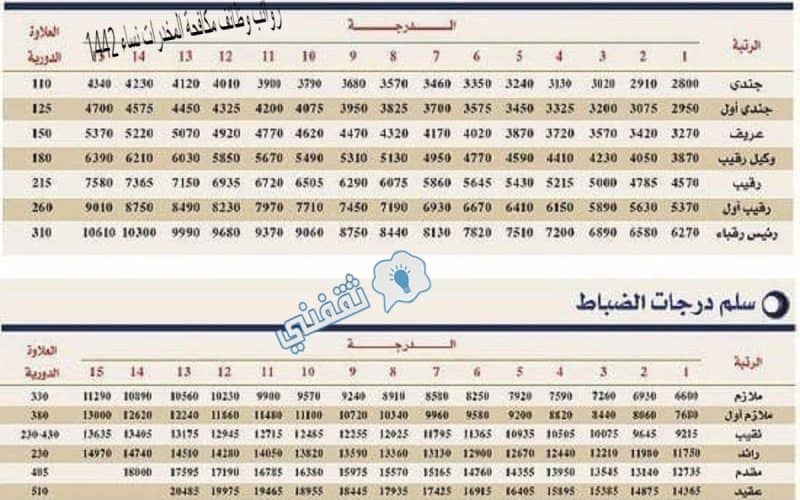 رواتب وظائف مكافحة المخدرات نساء 1442
الرتبة الـدرجـة العلاوة الدورية
1 2 3 4 5 6 7 8 9 10 11 12 13 14 15
جندي 2800 2910 3020 3130 3240 3350 3460 3570 3680 3790 3900 4010 4120 4230 4340 110
جندي أول 2950 3075 3200 3325 3450 3575 3700 3825 3950 4075 4200 4325 4450 4575 4700 125
عريف 3270 3420 3570 3720 3870 4020 4170 4320 4470 4620 4770 4920 5070 5220 5370 150
وكيل رقيب 3870 4050 4230 4410 4590 4770 4950 5130 5310 5490 5670 5850 6030 6210 6390 180
رقيب 4570 4785 5000 5215 5430 5645 5860 6075 6290 6505 6720 6935 7150 7365 7580 215
رقيب أول 5370 5630 5890 6150 6410 6670 6930 7190 7450 7710 7970 8230 8490 8750 9010 260
رئيس رقباء 6270 6580 6890 7200 7510 7820 8130 8440 8750 9060 9370 9680 9990 10300 10610 310
ثقفني
سلم درجات الضباط
الرتبة الـدرجـة العلاوة الدورية
1 2 3 4 5 6 7 8 9 10 11 12 13 14 15
ملازم 6600 6930 7260 7590 7920 8250 8580 8910 9240 9570 9900 10230 10560 10890 11290 330
ملازم أول 7680 8060 8440 8820 9200 9580 9960 10340 10720 11100 11480 11860 12240 12620 13000 380
نقيب 9215 9645 10075 10505 10935 11365 11795 12025 12255 12485 12715 12945 13175 13405 13635 230-430
رائد 11750 11980 12210 12440 12670 12900 13130 13360 13590 13820 14050 14280 14510 14740 14970 230
مقدم 12735 13140 13545 13950 14355 14760 15165 15570 15975 16380 16785 17190 17595 18000 405
عقيد 14365 14875 15385 15895 16405 16915 17425 17935 18445 18955 19465 19975 20485 510